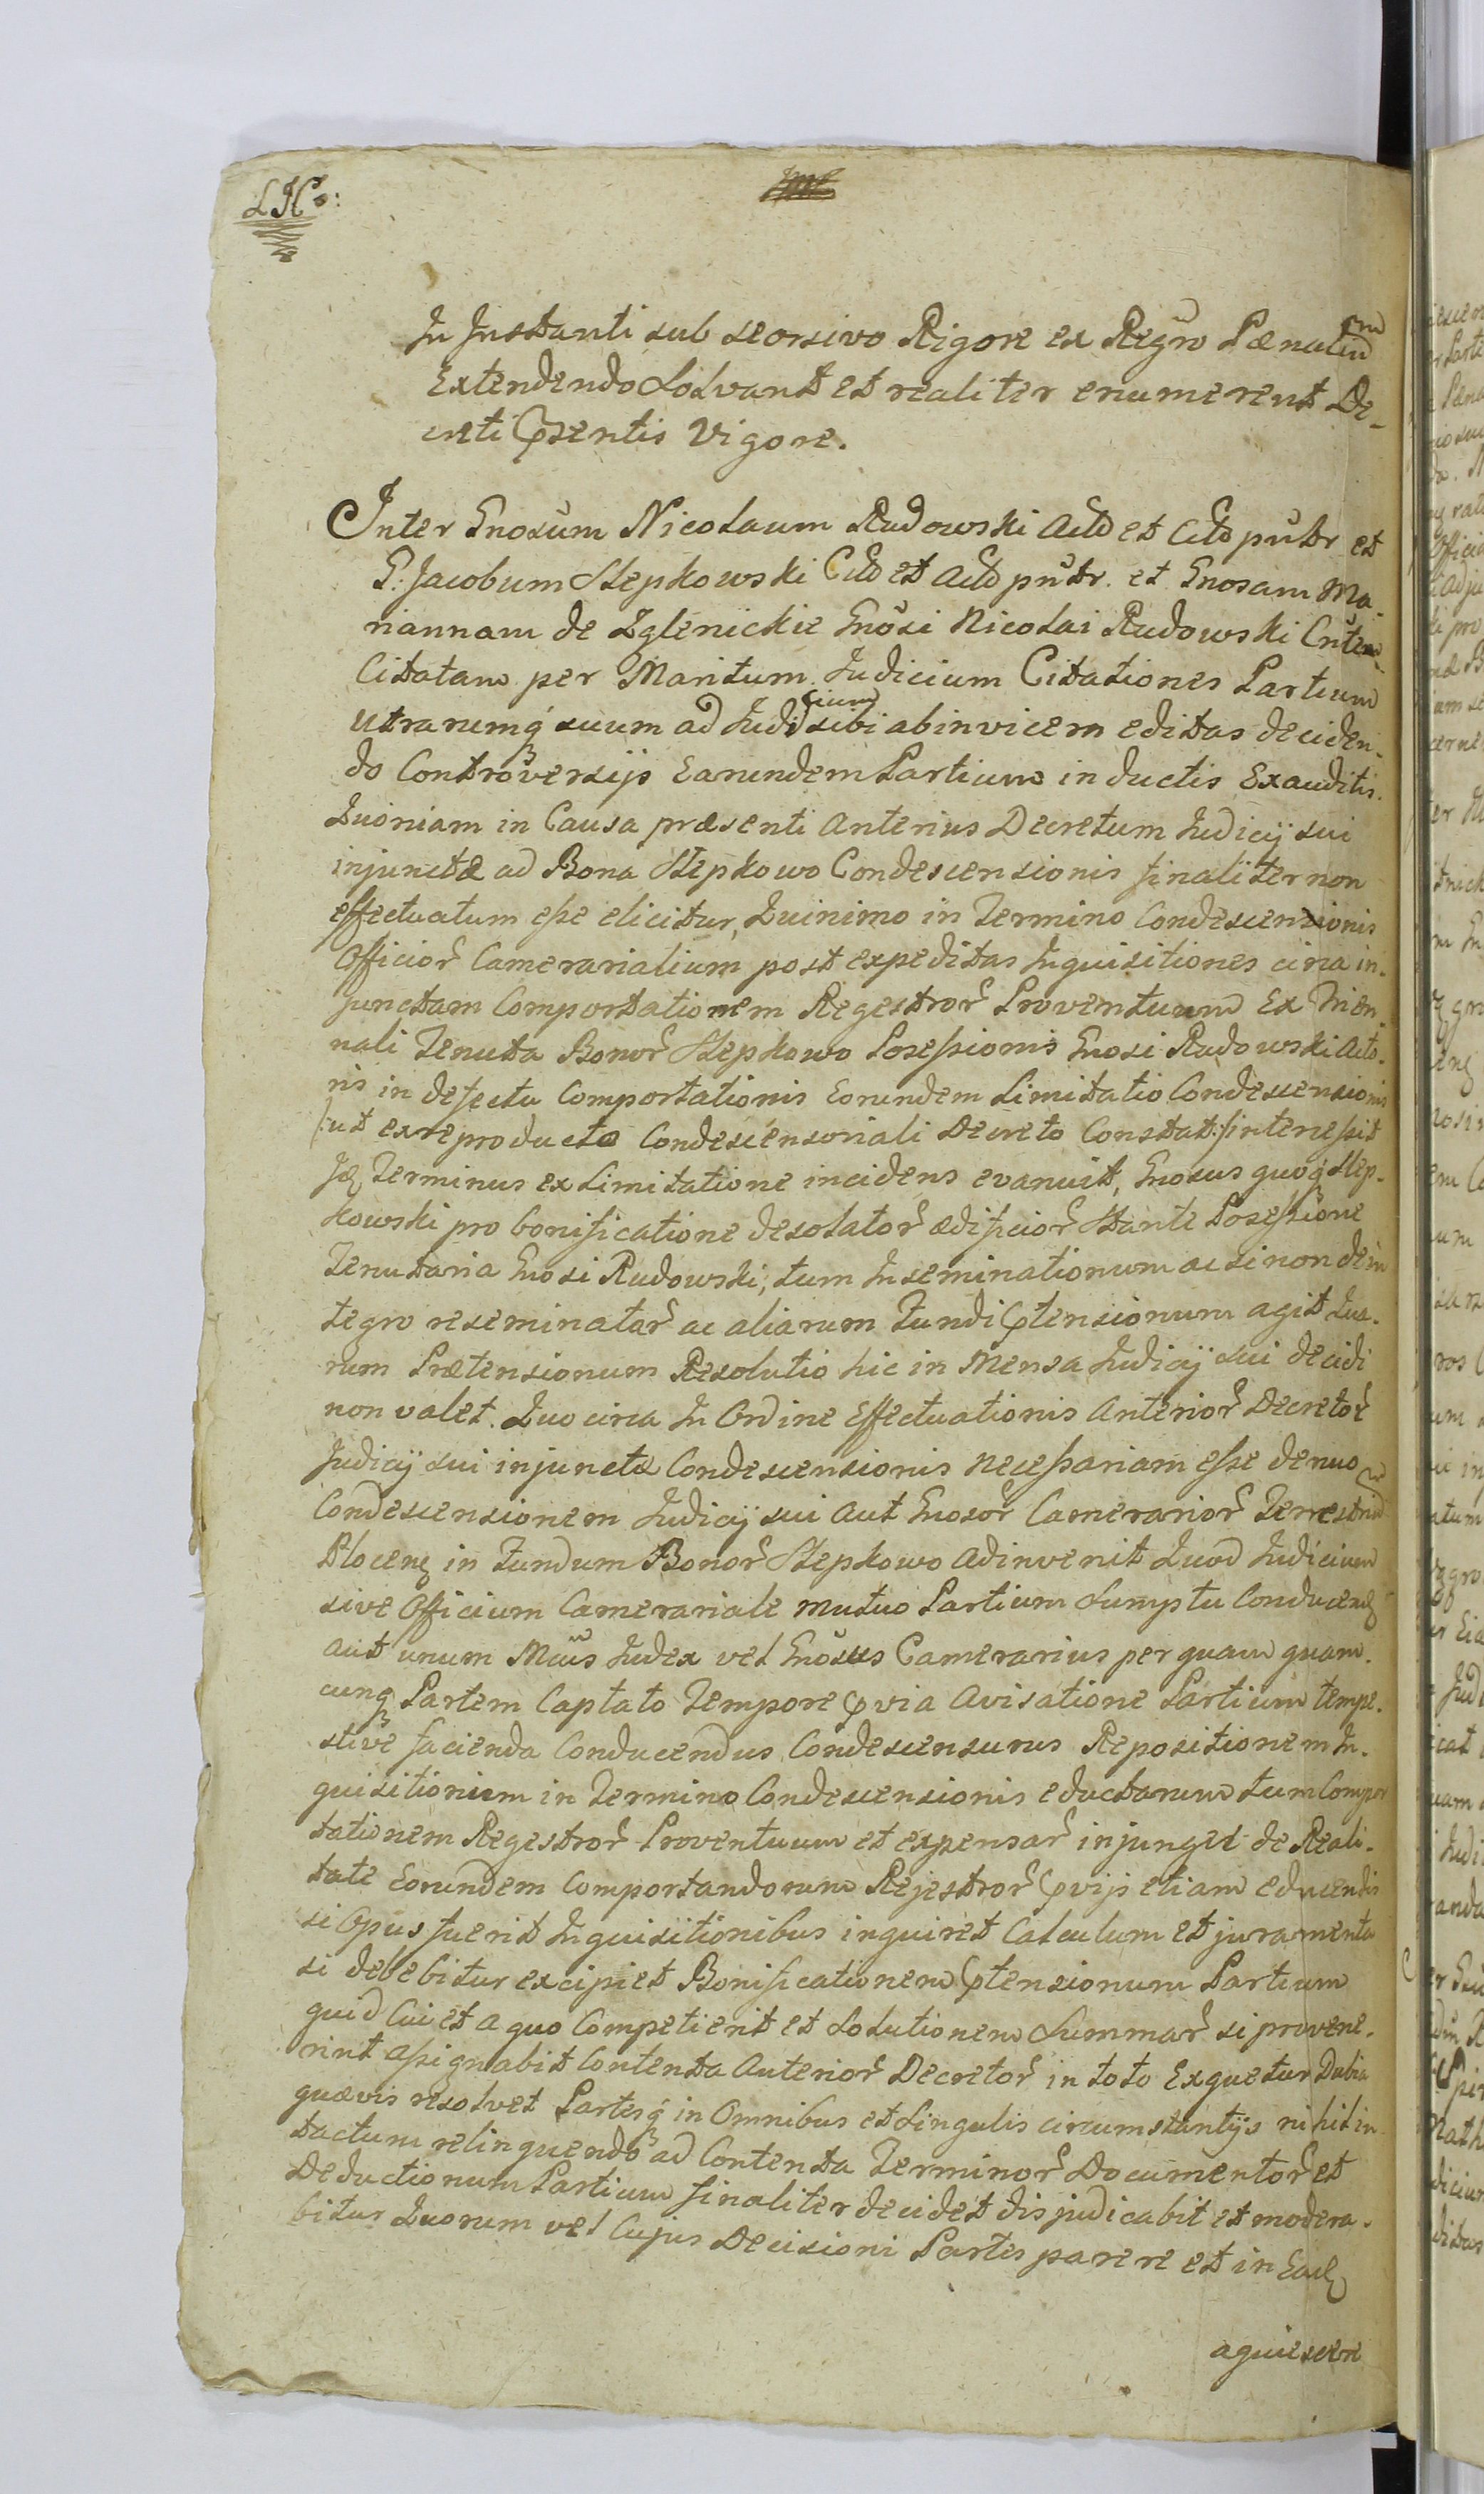 In Instanti sub seorsivo Rigore ex Regro Pænalium
Extendendo Solvant et realiter enumerent De-
creti Pnsentis Vigore.
Inter Gnosum Nicolaum Rudowski Acto et Cito pntbr et
G: Jacobum Stepkowski Cito et Acto pntbr. et Gnosam Ma-
riannam de Zglenickie Gnosi Nicolai Rudowski Cntem
Citatam per Maritum. Judicium Citationes Partium
utrarumq suum ad Judicium sibi abinvicem editas deciden-
do Controversijs Earundem Partium inductis Exauditis.
Quoniam in Causa præsenti Anterius Decretum Judicij sui
injunctæ ad Bona Stepkowo Condescensionis finaliter non
effectuatum esse elicitur, Quinimo in Termino Condescensionis
Officior Camerarialium post expeditas Inquisitiones circa in-
junctam Comportationem Regestror Proventuum Ex Trien-
nali Tenuta Bonor Stepkowo Possessionis Gnosi Rudowski Acto-
ris in defectu Comportationis Eorundem Limitatio Condescensionis
/:ut ex reproducto Condescensoriali Decreto Constat:/ intercessit
Itaq Terminus ex Limitatione incidens evanuit, Gnosus quoq Step-
kowski pro bonificatione desolator ædificior stante Possessione
Tenutaria Gnosi Rudowski, tum Inseminationum ac si non dein
tegro reseminatar ac aliarum Fundi Ptensionum agit Qua-
rum Prætensionum Resolutio hic in Mensa Judicij sui decidi
non valet. Quocirca In Ordine Effectuationis Anterior Decretor
Judicij sui injunctæ Condescensionis necessariam esse denuo
Condescensionem Judicij sui aut Gnosor Camerarior Terrestrium
Plocen in Fundum Bonor Stepkowo Adinvenit Quod Judicium
sive Officium Camerariale mutuo Partium Sumptu Conducen
aut unum Mcus Judex vel Gnosus Camerarius per quam quam-
cunq Partem Captato Tempore pvia Avisatione Partium tempe-
stive facienda Conducendus Condescensurus Repositionem In-
quisitionum in Termino Condescensionis eductarum tum Compor
tationem Regestror Proventuum et expensar injunget de Reali-
tate Eorundem Comportandorum Rejestror pvijs etiam educendis
si Opus fuerit Inquisitionibus inquiret Calculum et juramenta
si debebitur excipiet Bonificationem Ptensionum Partium
quid Cui et a quo Competierit et Solutionem Summar si provene-
rint assignabit Contenta Anterior Decretor in toto Exquetur Dubia
quævis resolvet Partesq in Omnibus et Singulis circumstantijs nihil in
tactum relinquendo ad Contenta Terminor Documentor et
Deductionum Partium finaliter decidet disjudicabit et modera-
bitur Quorum vel Cujus Decisioni Partes parere et in Ead
aquiescere